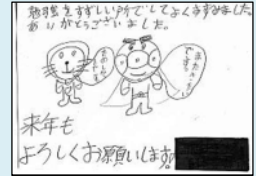 勉強をすずしい所でしてよくすすみました。
ありがとうございました。
来年も
よろしくお願いします。